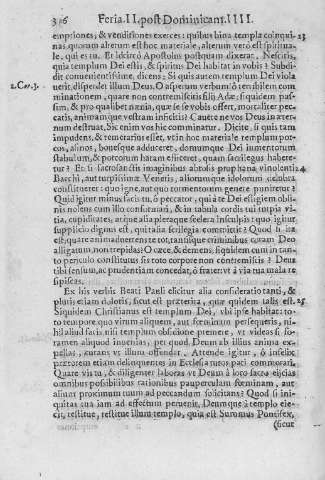 316 Feria. II. post Dominicam. IIII.
emptiones, & venditiones exerces: quibus bina templa coinqui- 23
nas, quorum alterum est hoc materiale, alterum verò est spirituale,
qui es tu. Et idcircò Apostolus postquam dixerat, Nescitis,
quia templum Dei estis, & spiritus Dei habitat in vobis? Subdidit
convenientissimè, dicens: Si quis autem templum Dei viola
2. Cor. 3. verit, disperdet illum Deus. O asperum verbum! ò terribilem com
minationem, quare non contremiscitis filij Adae, siquidem passim,
& pro qualibet naenia, quae se se vobis offert, mortaliter peccatis,
animamque vestram inficitis? Cavete ne vos Deus in aeternum
destruat, Sic enim vos hic comminatur. Dicite, si quis tam
impudens, & temerarius esset, vt in hoc materiale templum porcos,
asinos, bouesque adduceret, domumque Dei iumentorum
stabulum, & porcorum haram efficeret, quam sacrilegus haberetur?
Et si sacrosanctis imaginibus abrodis prophana vinolentis 24
Bacchi, aut turpissimae Veneris, aliorumque idolorum
constitueret: quo igne, aut quo tormentorum genere puniretur?
Quid igitur minus facis tu, ò peccator, qui à te Dei effigiem obliteris
nolens cum illo consuetudinari, & in tabula cordis tui turpia vitia,
cupiditates, atque alia perplurimaque scelera insculpis: quo igitur
supplicio dignus est, qui talia scelera committit? Quod si ita
est, quare animadvertens te tot, tantisque criminibus quam Deo
alligatum, non trepidas? O caece, & demens, siquidem cum in tanto
periculo constitutus sis toto corpore non contremiscis? Deus
tibi sensum, ac prudentiam concedat, ò frater vt à via tua mala
respiscas.
Ex his verbis Beati Pauli elicitur alia consideratio tanti, &
pluris etiam doloris, sicut est praeterita, quae quidem talis est. 25
Siquidem Christianus est templum Dei, vbi ipse habitat: toto
tempore quo virum aliquem, aut foeminam persequeris, nihil
aliud facis, nisi templum obsidione premere, vt videas si foramen
aliquod invenias, per quod Deum ab illius anima expellas,
curans vt illum offendat. Attende igitur, ò infelix
praeterea etiam delinquentes in Ecclesia tutos pati commorari.
Quare vis tu, & diligenter laboras vt Deum à loco sacro eijcias
omnibus possibilibus rationibus pauperculam foeminam, aut
alium proximum tuum ad peccandum solicitans? Quod si iniquitas
tua iam ad effectum pervenit, Deumque à templo eiecit,
restitue, restitue illum templo, quia est Summus Pontifex,
(sicut